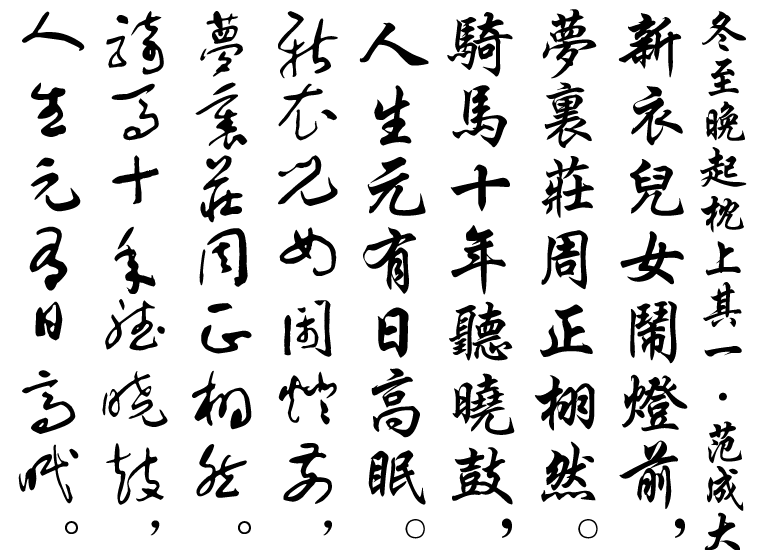 冬至晚起枕上其一·范成大
新衣兒女鬧燈前，
夢裏莊周正栩然。
騎馬十年聽曉鼓，
人生元有日高眠。
新衣兒女鬧燈前，
夢裏莊周正栩然。
騎馬十年聽曉鼓，
人生元有日高眠。